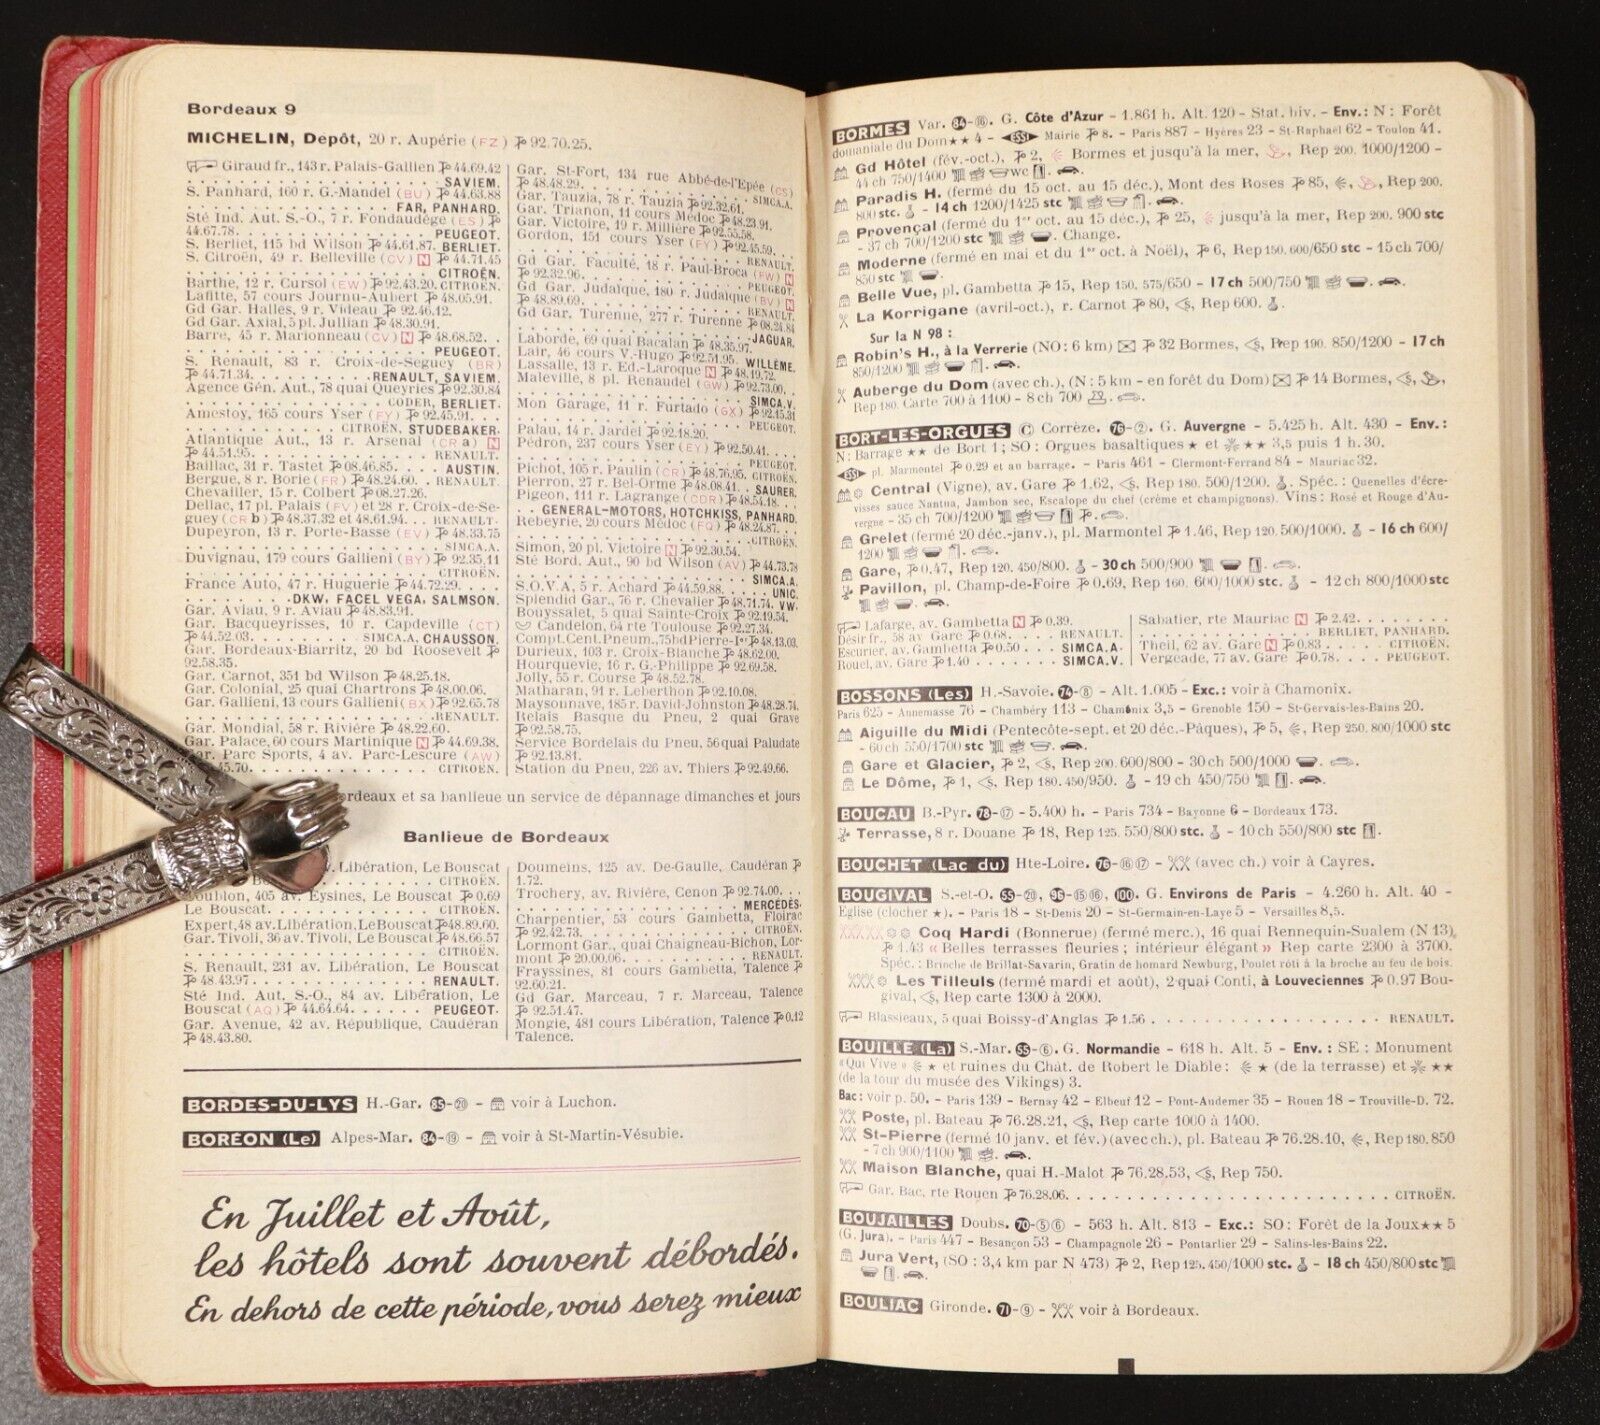 Bordeaux 9
MICHELIN, Dépôt, 20 r. Aupérie (FZ) 92.70.25.
Giraud fr., 143 r. Palais-Gallien 44.69.42
SAVIEM.
S. Panhard, 160 r. G.-Mandel (BU) 44.63.88
FAR, PANHARD.
Sté Ind. Aut. S.-O., 7 r. Fondaudège (ES)
44.67.78. PEUGEOT.
S. Berliet, 115 bd Wilson 44.61.87. BERLIET.
S. Citroën, 49 r. Belleville (CV) N 44.71.45
CITROËN.
Barthe, 12 r. Cursol (EW) 92.43.20. CITROËN.
Lafitte, 57 cours Journu-Aubert 48.05.91.
Gd Gar. Halles, 9 r. Videau 92.46.12.
Gd Gar. Axial, 5 pl. Jullian 48.30.91.
Barre, 45 r. Marionneau (CV) N 48.68.52. .
PEUGEOT.
S. Renault, 83 r. Croix-de-Seguey (BR)
44.71.34. RENAULT, SAVIEM.
Agence Gén. Aut., 78 quai Queyries 92.30.84
CODER, BERLIET.
Amestoy, 165 cours Yser (FY) 92.45.91. . . .
CITROËN, STUDEBAKER.
Atlantique Aut., 13 r. Arsenal (CR a) N
44.51.95. RENAULT.
Baillac, 31 r. Tastet 08.46.85. . . . AUSTIN.
Bergue, 8 r. Borie (FR) 48.24.60. . RENAULT.
Chevailler, 15 r. Colbert 08.27.26.
Dellac, 17 pl. Palais (FV) et 28 r. Croix-de-Se-
guey (CR b) 48.37.32 et 48.61.94. . . RENAULT.
Dupeyron, 13 r. Porte-Basse (EV) 48.33.75
SIMCA.A.
Duvignau, 179 cours Gallieni (BY) 92.35.11
CITROËN.
France Auto, 47 r. Huguerie 44.72.29. . . .
DKW, FACEL VEGA, SALMSON.
Gar. Aviau, 9 r. Aviau 48.83.91.
Gar. Bacqueyrisses, 10 r. Capdeville (CT)
44.52.03. SIMCA.A, CHAUSSON.
Gar. Bordeaux-Biarritz, 20 bd Roosevelt
92.58.35.
Gar. Carnot, 351 bd Wilson 48.25.18.
Gar. Colonial, 25 quai Chartrons 48.00.06.
Gar. Gallieni, 13 cours Gallieni (BX) 92.65.78
RENAULT.
Gar. Mondial, 58 r. Rivière 48.22.60.
Gar. Palace, 60 cours Martinique N 44.69.38.
Gar. Parc Sports, 4 av. Parc-Lescure (AW)
45.70. CITROËN.
Gar. St-Fort, 134 rue Abbé-de-l'Epée (CS)
48.48.29. SIMCA.A.
Gar. Tauzia, 78 r. Tauzia 92.32.61.
Gar. Trianon, 11 cours Médoc 48.23.91.
Gar. Victoire, 19 r. Millière 92.55.58.
Gordon, 151 cours Yser (FY) 92.45.59. . .
RENAULT.
Gd Gar. Faculté, 18 r. Paul-Broca (FW) N
92.32.96. PEUGEOT.
Gd Gar. Judaïque, 180 r. Judaïque (BV) N
48.89.69. RENAULT.
Gd Gar. Turenne, 277 r. Turenne 08.24.84
JAGUAR.
Laborde, 69 quai Bacalan 48.35.97.
Lair, 46 cours V.-Hugo 92.51.95. WILLÈME.
Lassalle, 13 r. Ed.-Laroque N 48.19.72.
Maleville, 8 pl. Renaudel (GW) 92.73.00. . .
SIMCA.V.
Mon Garage, 11 r. Furtado (GX) 92.15.31
PEUGEOT.
Palau, 14 r. Jardel 92.18.20.
Pédron, 237 cours Yser (EY) 92.50.41. . . .
PEUGEOT.
Pichot, 105 r. Paulin (CR) 48.76.95. CITROËN.
Pierron, 27 r. Bel-Orme 48.08.41. . SAURER.
Pigeon, 111 r. Lagrange (CDR) 48.54.18. . .
GENERAL-MOTORS, HOTCHKISS, PANHARD.
Rebeyrie, 20 cours Médoc (FQ) 48.24.87. . .
CITROËN.
Simon, 20 pl. Victoire N 92.30.54.
Sté Bord. Aut., 90 bd Wilson (AV) 44.73.78
SIMCA.A.
S.O.V.A, 5 r. Achard 44.59.88. . . . . UNIC.
Splendid Gar., 76 r. Chevalier 48.71.74. VW.
Bouyssalet, 5 quai Sainte-Croix 92.19.54.
Candelon, 64 rte Toulouse 92.27.34.
Compt.Cent.Pneum., 75 bd Pierre-Ier 48.13.03.
Durieux, 103 r. Croix-Blanche 48.62.00.
Hourquevie, 16 r. G.-Philippe 92.69.58.
Jolly, 55 r. Course 48.52.78.
Matharan, 91 r. Leberthon 92.10.08.
Maysonnave, 185 r. David-Johnston 48.28.74.
Relais Basque du Pneu, 2 quai Grave
92.58.75.
Service Bordelais du Pneu, 56 quai Paludate
92.13.81.
Station du Pneu, 226 av. Thiers 92.49.66.
ordeaux et sa banlieue un service de dépannage dimanches et jours
Banlieue de Bordeaux
v. Libération, Le Bouscat
CITROËN.
oublon, 405 av. Eysines, Le Bouscat 0.69
Le Bouscat. CITROËN.
Expert, 48 av. Libération, Le Bouscat 48.89.60.
Gar. Tivoli, 36 av. Tivoli, Le Bouscat 48.66.57
CITROËN.
S. Renault, 231 av. Libération, Le Bouscat
48.43.97. RENAULT.
Sté Ind. Aut. S.-O., 84 av. Libération, Le
Bouscat (AQ) 44.64.64. PEUGEOT.
Gar. Avenue, 42 av. République, Caudéran
48.43.80.
Doumeins, 125 av. De-Gaulle, Caudéran
1.72.
Trochery, av. Rivière, Cenon 92.74.00. . .
MERCÉDÈS.
Charpentier, 53 cours Gambetta, Floirac
92.42.73. CITROËN.
Lormont Gar., quai Chaigneau-Bichon, Lor-
mont 20.00.06. RENAULT.
Frayssines, 81 cours Gambetta, Talence
92.60.21.
Gd Gar. Marceau, 7 r. Marceau, Talence
92.51.47.
Mongie, 481 cours Libération, Talence 0.12
Talence.
BORDES-DU-LYS H.-Gar. 85-20 - voir à Luchon.
BORÉON (Le) Alpes-Mar. 84-19 - voir à St-Martin-Vésubie.
En Juillet et Août,
les hôtels sont souvent débordés.
En dehors de cette période, vous serez mieux
BORMES Var. 84-16. G. Côte d'Azur - 1.861 h. Alt. 120 - Stat. hiv. - Env.: N : Forêt
domaniale du Dom★★ 4 - ESSI Mairie 8. - Paris 887 - Hyères 23 - St-Raphaël 62 - Toulon 41.
Gd Hôtel (fév.-oct.), 2, Bormes et jusqu'à la mer, , Rep 200. 1000/1200 -
44 ch 750/1400 wc .
Paradis H. (fermé du 15 oct. au 15 déc.), Mont des Roses 85, , , Rep 200.
800 stc. - 14 ch 1200/1425 stc .
Provençal (fermé du 1er oct. au 15 déc.), 25, jusqu'à la mer, Rep 200. 900 stc
- 37 ch 700/1200 stc . Change.
Moderne (fermé en mai et du 1er oct. à Noël), 6, Rep 150. 600/650 stc - 15 ch 700/
850 stc .
Belle Vue, pl. Gambetta 15, Rep 150. 575/650 - 17 ch 500/750 .
La Korrigane (avril-oct.), r. Carnot 80, , Rep 600. .
Sur la N 98 :
Robin's H., à la Verrerie (NO: 6 km) 32 Bormes, , Rep 190. 850/1200 - 17 ch
850/1200 .
Auberge du Dom (avec ch.), (N : 5 km - en forêt du Dom) 14 Bormes, , ,
Rep 180. Carte 700 à 1100 - 8 ch 700 .
BORT-LES-ORGUES C Corrèze. 76-2. G. Auvergne - 5.425 h. Alt. 430 - Env.:
N : Barrage ★★ de Bort 1; SO : Orgues basaltiques ★ et ★★ 3,5 puis 1 h. 30.
ESSI pl. Marmontel 0.29 et au barrage. - Paris 461 - Clermont-Ferrand 84 - Mauriac 32.
Central (Vigne), av. Gare 1.62, , Rep 180. 500/1200. . Spéc.: Quenelles d'écre-
visses sauce Nantua, Jambon sec, Escalope du chef (crème et champignons). Vins : Rosé et Rouge d'Au-
vergne - 35 ch 700/1200 .
Grelet (fermé 20 déc.-janv.), pl. Marmontel 1.46, Rep 120. 500/1000. - 16 ch 600/
1200 .
Gare, 0.47, Rep 120. 450/800. - 30 ch 500/900 .
Pavillon, pl. Champ-de-Foire 0.69, Rep 160. 600/1000 stc. - 12 ch 800/1000 stc
Lafarge, av. Gambetta N 0.39.
Désir fr., 58 av Gare 0.68. . . . RENAULT.
Escurier, av. Gambetta 0.50 . . . SIMCA.A.
Rouel, av. Gare 1.40 . . . . . . . SIMCA.V.
Sabatier, rte Mauriac N 2.42. . . . . . . .
BERLIET, PANHARD.
Theil, 62 av. Gare N 0.83 . . . . . CITROËN.
Vergeade, 77 av. Gare 0.78. . . . PEUGEOT.
BOSSONS (Les) H.-Savoie. 74-8 - Alt. 1.005 - Exc.: voir à Chamonix.
Paris 625 - Annemasse 76 - Chambéry 113 - Chamonix 3,5 - Grenoble 150 - St-Gervais-les-Bains 20.
Aiguille du Midi (Pentecôte-sept. et 20 déc.-Pâques), 5, , Rep 250. 800/1000 stc
- 60 ch 550/1700 stc .
Gare et Glacier, 2, , Rep 200. 600/800 - 30 ch 500/1000 .
Le Dôme, 1, , Rep 180. 450/950. - 19 ch 450/750 .
BOUCAU B.-Pyr. 78-17 - 5.400 h. - Paris 734 - Bayonne 6 - Bordeaux 173.
Terrasse, 8 r. Douane 18, Rep 125. 550/800 stc. - 10 ch 550/800 stc .
BOUCHET (Lac du) Hte-Loire. 76-16 17 - (avec ch.) voir à Cayres.
BOUGIVAL S.-et-O. 55-20, 96-15 16, 100. G. Environs de Paris - 4.260 h. Alt. 40 -
Eglise (clocher ★). - Paris 18 - St-Denis 20 - St-Germain-en-Laye 5 - Versailles 8,5.
Coq Hardi (Bonnerue) (fermé merc.), 16 quai Rennequin-Sualem (N 13),
1.43 « Belles terrasses fleuries ; intérieur élégant » Rep carte 2300 à 3700.
Spéc.: Brioche de Brillat-Savarin, Gratin de homard Newburg, Poulet rôti à la broche au feu de bois.
Les Tilleuls (fermé mardi et août), 2 quai Conti, à Louveciennes 0.97 Bou-
gival, , Rep carte 1300 à 2000.
Blassieaux, 5 quai Boissy-d'Anglas 1.56 . . . . . RENAULT.
BOUILLE (La) S.-Mar. 55-6. G. Normandie - 618 h. Alt. 5 - Env. : SE : Monument
« Qui Vive » ★ et ruines du Chât. de Robert le Diable : ★ (de la terrasse) et ★★
(de la tour du musée des Vikings) 3.
Bac: voir p. 50. - Paris 139 - Bernay 42 - Elbeuf 12 - Pont-Audemer 35 - Rouen 18 - Trouville-D. 72.
Poste, pl. Bateau 76.28.21, , Rep carte 1000 à 1400.
St-Pierre (fermé 10 janv. et fév.) (avec ch.), pl. Bateau 76.28.10, , Rep 180. 850
- 7 ch 900/1100 .
Maison Blanche, quai H.-Malot 76.28.53, , Rep 750.
Gar. Bac, rte Rouen 76.28.06. . . . . . CITROËN.
BOUJAILLES Doubs. 70-5 6 - 563 h. Alt. 813 - Exc.: SO : Forêt de la Joux★★ 5
(G. Jura). - Paris 447 - Besançon 53 - Champagnole 26 - Pontarlier 29 - Salins-les-Bains 22.
Jura Vert, (SO : 3,4 km par N 473) 2, Rep 125. 450/1000 stc. - 18 ch 450/800 stc
BOULIAC Gironde. 71-9 - voir à Bordeaux.